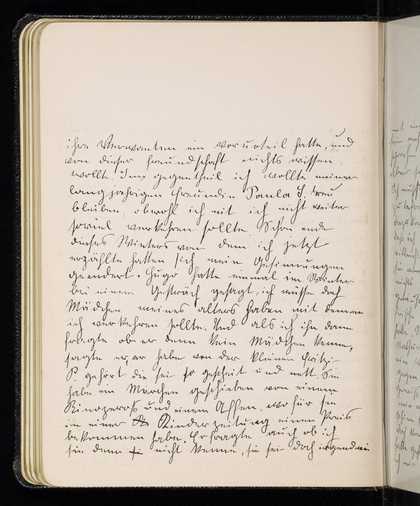 ihre Verwanten ein vorurteil hatte, und
von dieser freundschaft nichts wissen
wollte. Im gegenteil ich wollte meiner
langjährigen freundin Paula S. treu
bleiben obwohl ich mit ich nicht weiter
soviel verkehren sollte. Schon ende
dieses Winters von dem ich jetzt
erzählte hatten sich mein Gesinnungen
geendert. Hugo hatte einmal im Winter
bei einem Gespräch gesagt, ich müsse doch
Mädchen meines alters haben mit denen
ich verkehren sollte. Und als ich ihn dann
fragte ob er denn kein Mädchen kenne,
sagte er er habe von der kleinen Fritzi
P. gehört die sei so gescheit und nett. Sie
habe ein Märchen geschrieben von einem
und einem Affen. wofür sie
in einer Kinderzeitung einen Preis
bekommen habe. Er fragte auch ob ich
sie denn nicht kenne, sie sei doch irgend